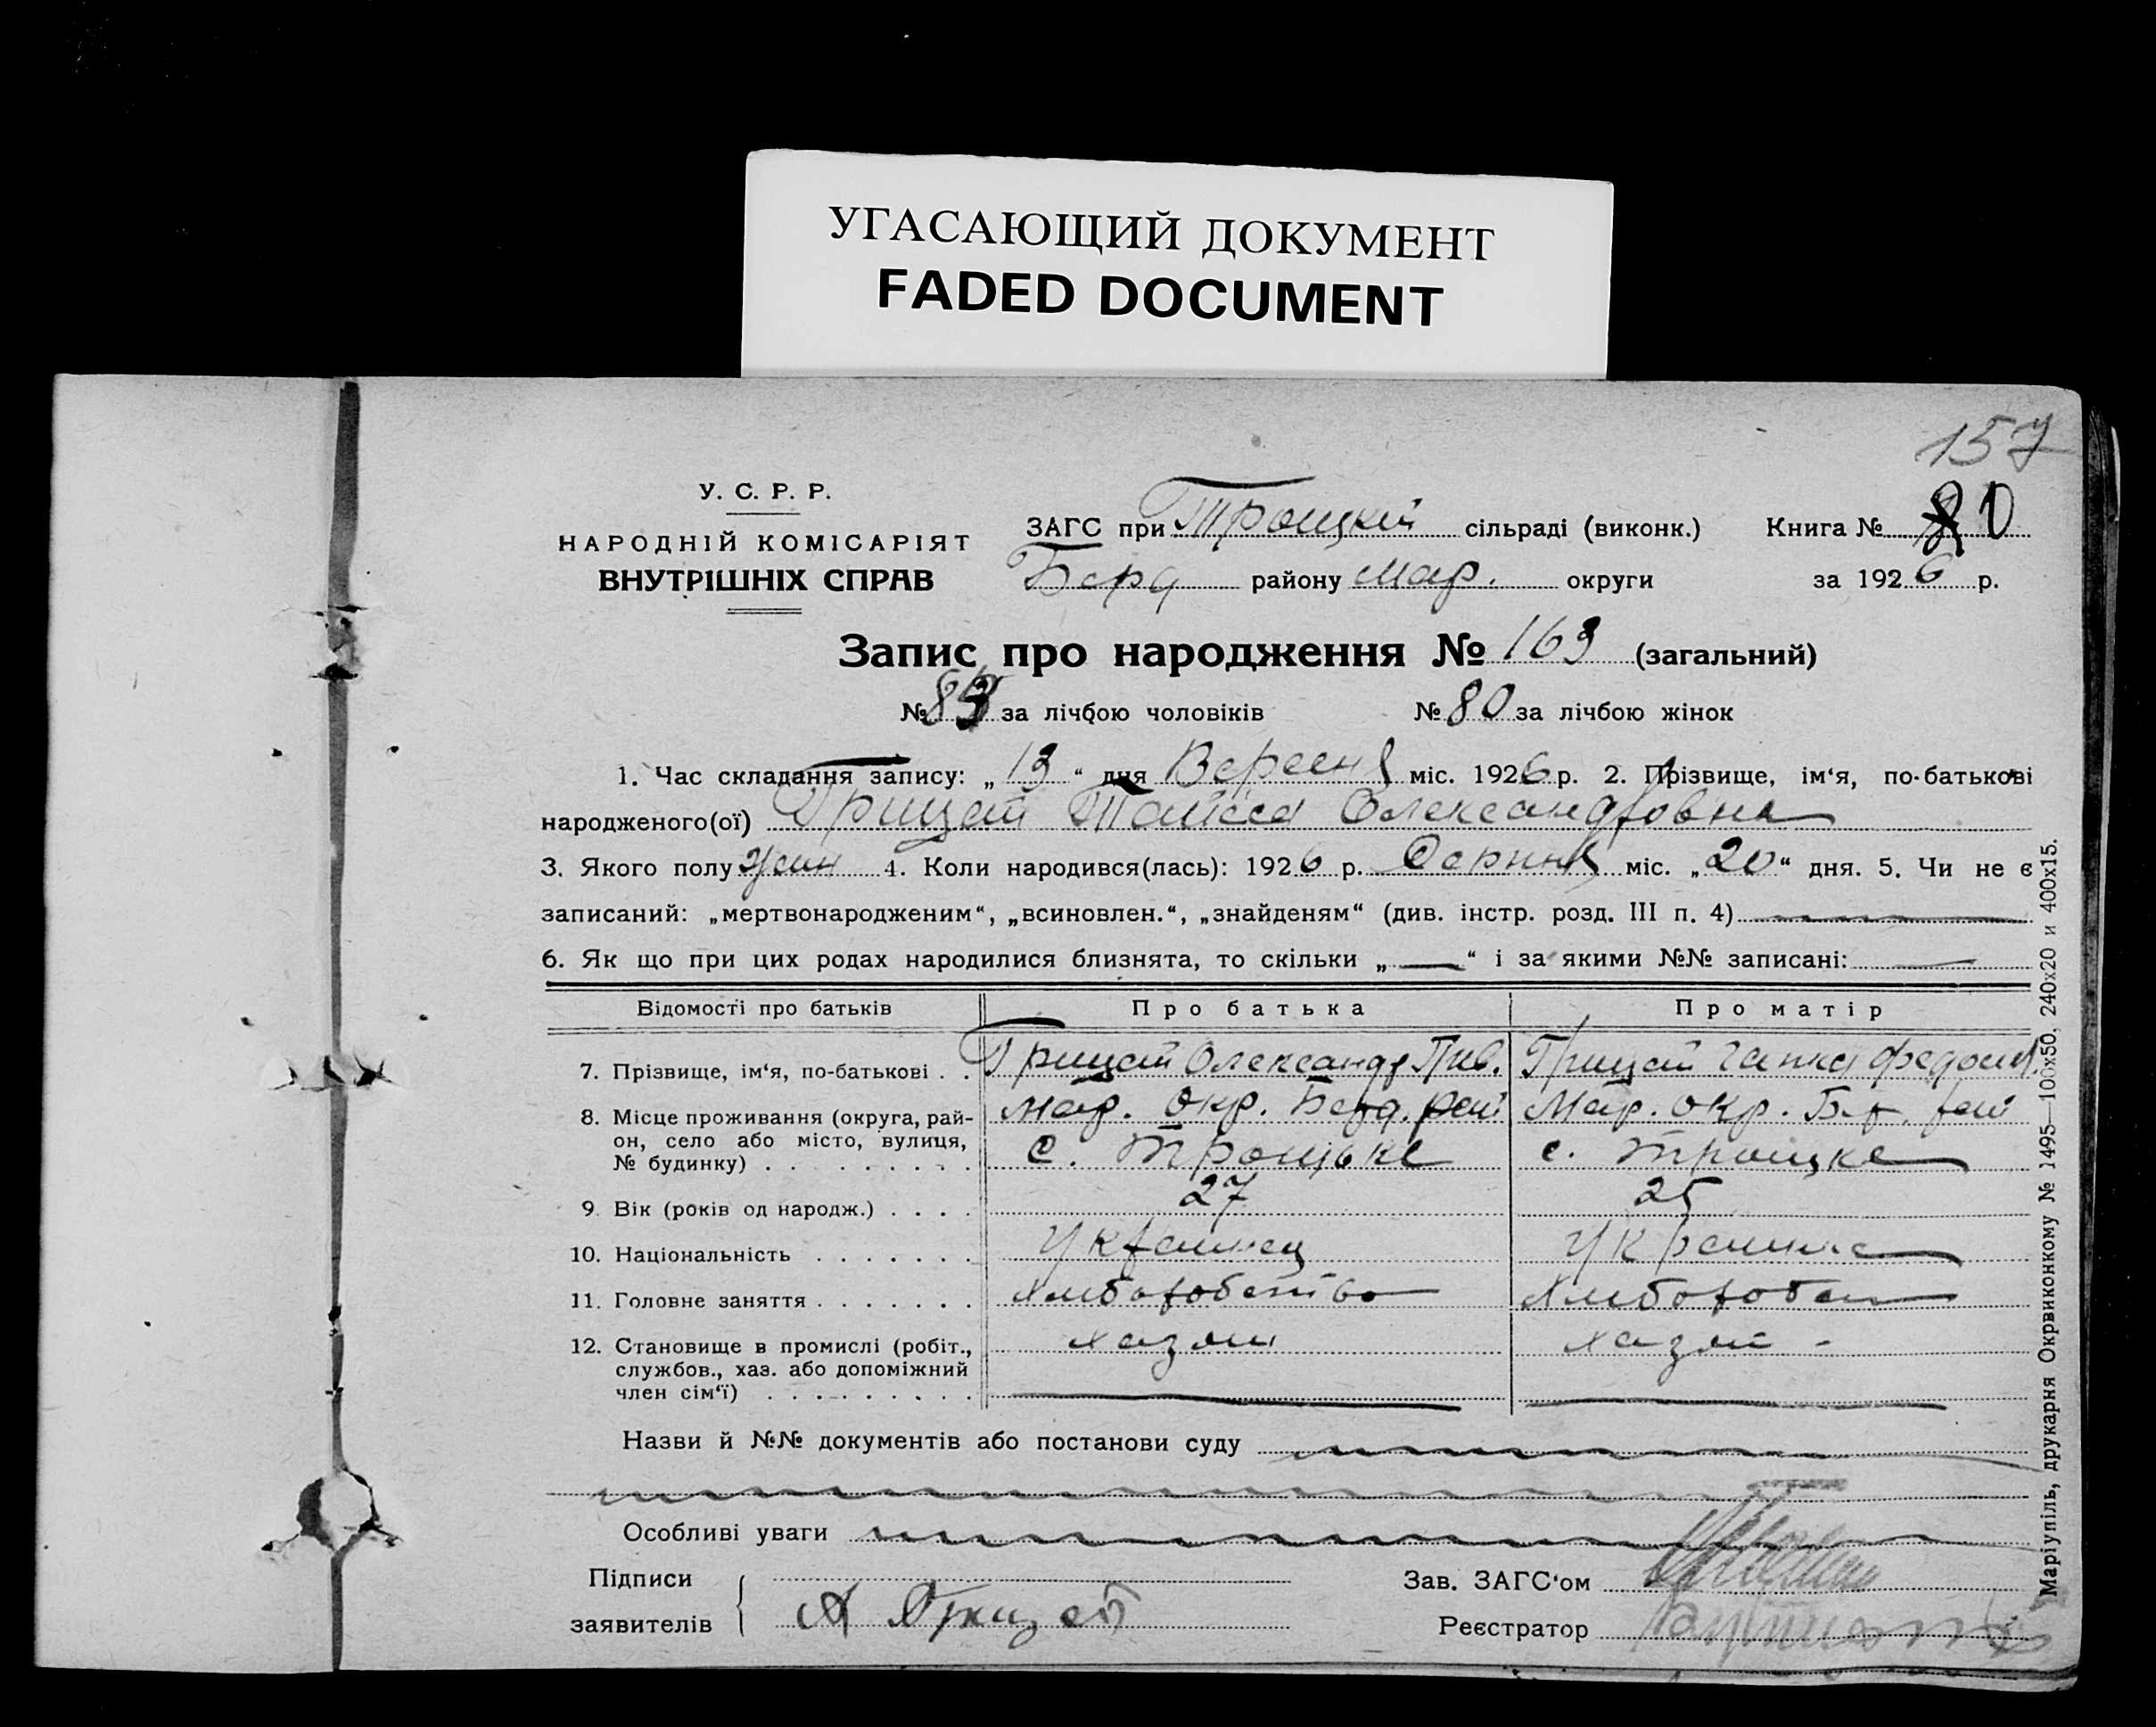 УГАСАЮЩИЙ ДОКУМЕНТ
FADED DOCUMENT
157
У. С. Р. Р.
НАРОДНІЙ КОМІСАРІЯТ
ВНУТРІШНІХ СПРАВ
ЗАГС при Троицкій сільраді (виконк.) Книга № 80
Берд району Мар. округи за 1926 р.
Запис про народження № 163 (загальний)
№ 83 за лічбою чоловіків № 80 за лічбою жінок
1. Час складання запису: „13“ дня Вересня міс. 1926 р. 2. Прізвище, ім‘я, по-батькові
народженого(ої) Грицай Таїса Олександровна
3. Якого полу жін 4. Коли народився(лась): 1926 р. Серпня міс. „20“ дня. 5. Чи не є
записаний: „мертвонародженим“, „всиновлен.“, „знайденям“ (див. інстр. розд. III п. 4)
6. Як що при цих родах народилися близнята, то скільки „—“ і за якими №№ записані: —
Відомості про батьків Про батька Про матір
7. Прізвище, ім‘я, по-батькові . . Грицай Олександр Грицай
8. Місце проживання (округа, рай- Мар. Окр. Берд. рай Мар. Окр. Бер. рай
он, село або місто, вулиця, с. Троицьке с. Троицке
№ будинку) . . . . . . . . .
9. Вік (років од народж.) . . . . 27 25
10. Національність . . . . . . . Украинец Украинка
11. Головне заняття . . . . . . . Хлиборобство
12. Становище в промислі (робіт., хазяин
службов., хаз. або допоміжний
член сім‘ї) . . . . . . . . .
Назви й №№ документів або постанови суду
Особливі уваги
Підписи
заявителів А Грицай
Зав. ЗАГС‘ом
Реєстратор
Маріупіль, друкарня Окрвиконкому № 1495—100х50, 240х20 и 400х15.